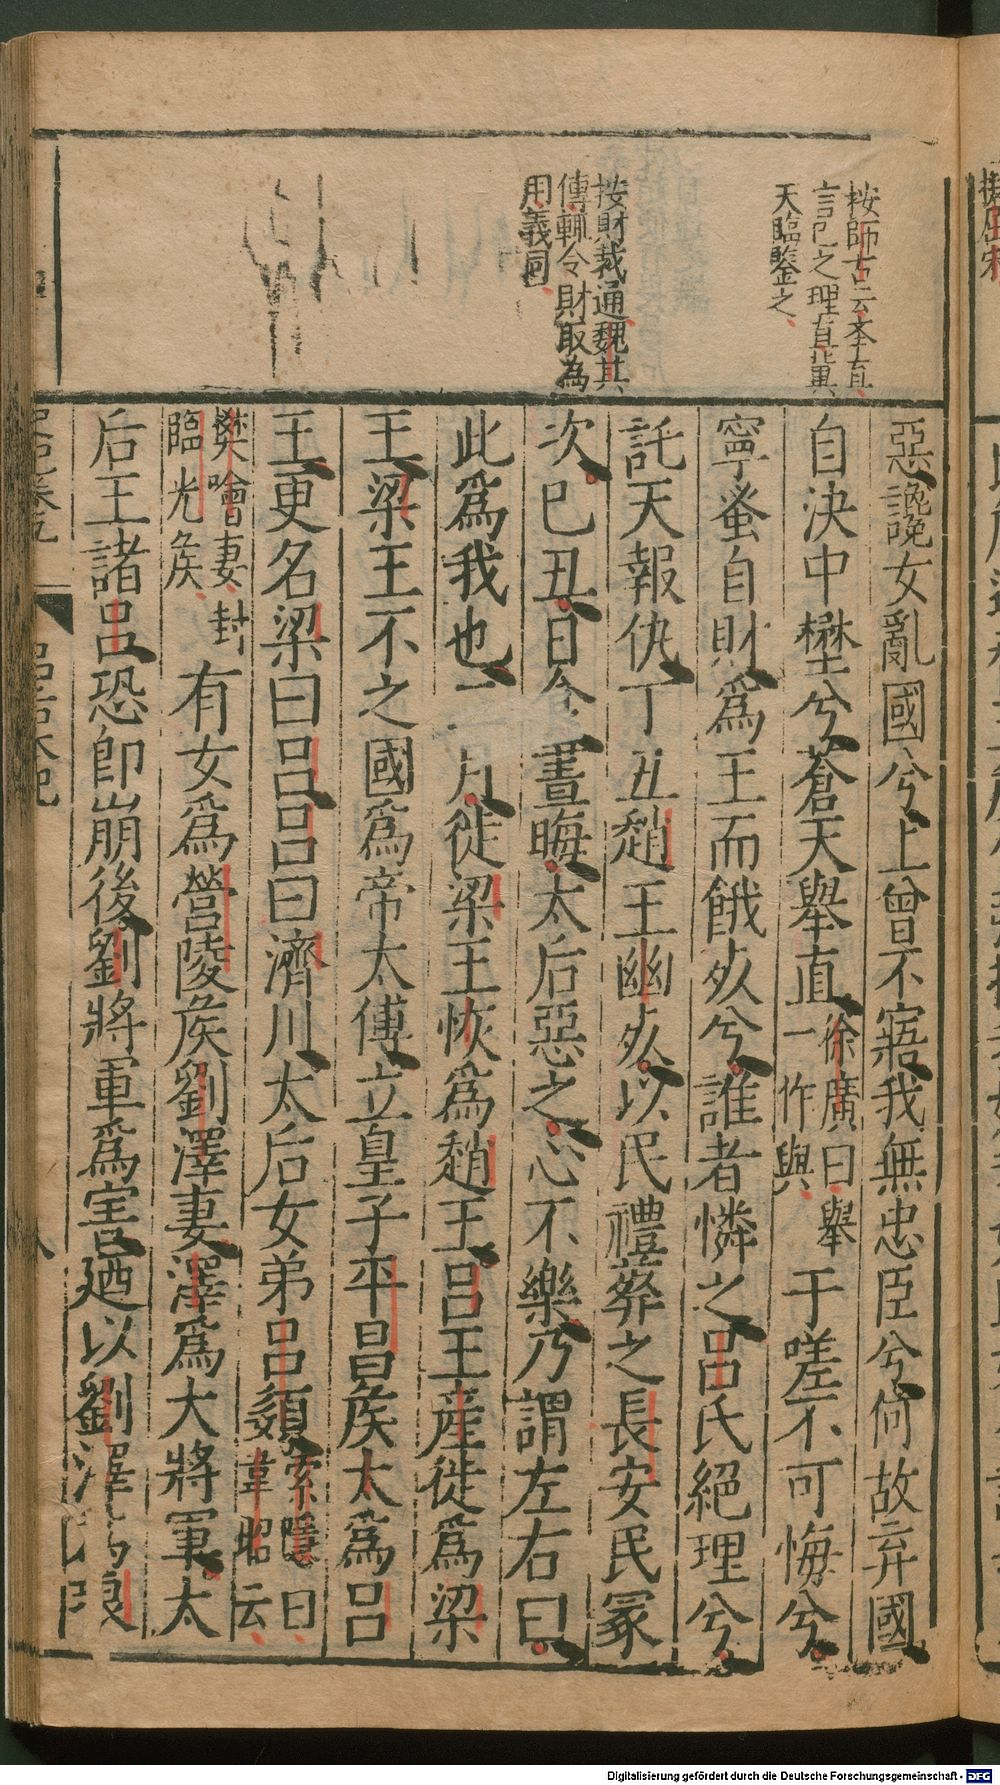 按師古云奉直
言己之理直冀
天臨鑒之
按財裁通魏其
傳輒令財取為
用義同
惡讒女亂國兮上曾不寤我無忠臣兮何故弃國
自決中壄兮蒼天舉直徐廣曰舉一作與于嗟不可悔兮
寧蚤自財爲王而餓死兮誰者憐之呂氏絕理兮
託天報仇丁丑趙王幽死以民禮葬之長安民冢
次已丑日食晝晦太后惡之心不樂乃謂左右曰
此爲我也二月徙梁王恢爲趙王呂王産徙爲梁
王梁王不之國爲帝太傅立皇子平昌侯太爲呂
王更名梁曰呂呂曰濟川太后女弟呂嬃索隱曰韋昭云
樊噲妻封臨光侯有女爲營陵侯劉澤妻澤爲大將軍太
后王諸呂恐卽崩後劉將軍爲害廼以劉澤爲瑯
呂后本紀
Digitalisierung gefördert durch die Deutsche Forschungsgemeinschaft - DFG